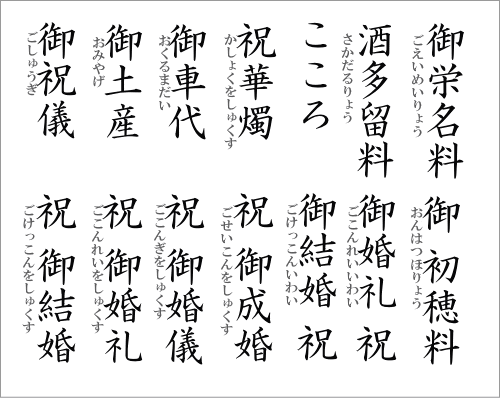 御栄名料
ごえいめいりょう
酒多留料
さかだるりょう
こころ
祝華燭
かしょくをしゅくす
御車代
おくるまだい
御土産
おみやげ
御祝儀
ごしゅうぎ
御初穂料
おんはつほりょう
御婚礼 祝
ごこんれいいわい
御結婚 祝
ごけっこんいわい
祝 御成婚
ごせいこんをしゅくす
祝 御婚儀
ごこんぎをしゅくす
祝 御婚礼
ごこんれいをしゅくす
祝 御結婚
ごけっこんをしゅくす